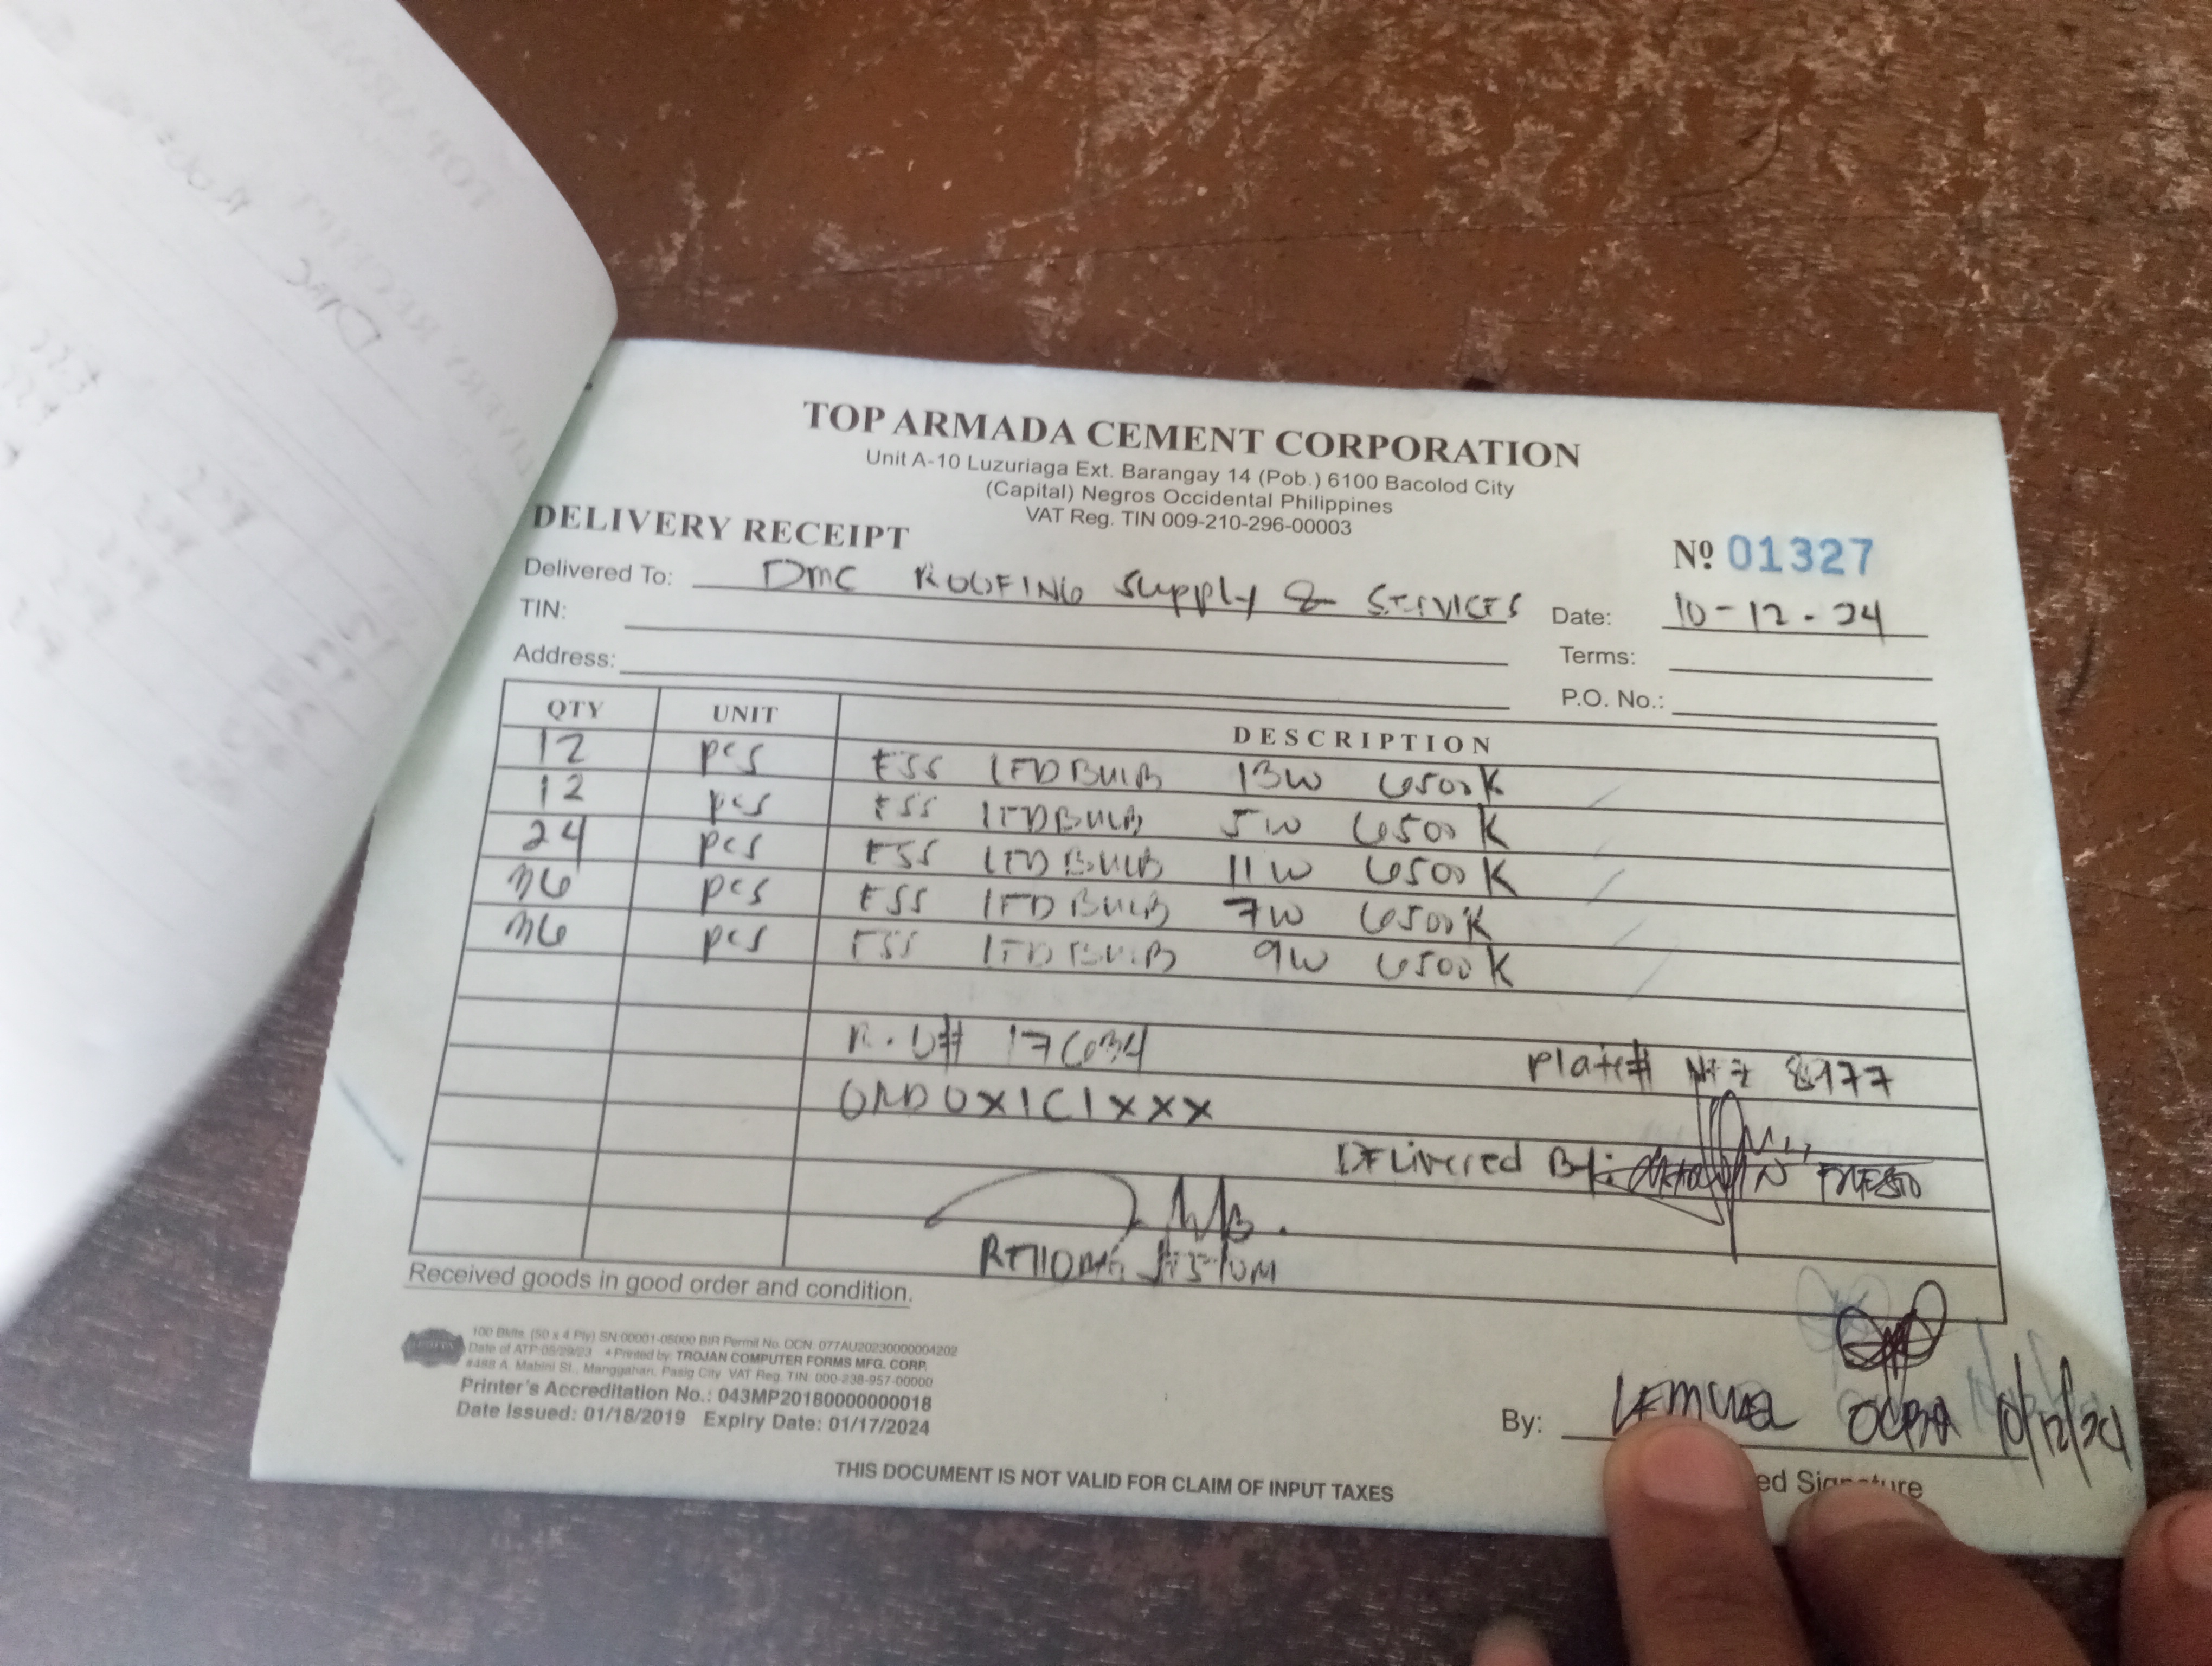 TOP ARMADA CEMENT CORPORATION
Unit A-10 Luzuriaga Ext. Barangay 14 (Pob.) 6100 Bacolod City
(Capital) Negros Occidental Philippines
VAT Reg. TIN 009-210-296-00003
DELIVERY RECEIPT
Nº 01327
Delivered To: DMC ROOFING Supply & SERVICES
Date: 10-12-24
TIN:
Terms:
Address:
P.O. No.:
QTY UNIT DESCRIPTION
12 pcs ESS LED BULB 13W 6500K
12 pcs ESS LED BULB 5W 6500K
24 pcs ESS LED BULB 11W 6500K
36 pcs ESS LED BULB 7W 6500K
36 pcs ESS LED BULB 9W 6500K
R.U# 17634
Plate# 8977
ORDOX1C1XXX
DELivered By:
Received goods in good order and condition.
100 Bklts. (50 x 4 Ply) SN:00001-05000 BIR Permit No. OCN: 077AU20230000004202
Date of ATP:05/29/23 Printed by: TROJAN COMPUTER FORMS MFG. CORP.
#488 A. Mabini St., Manggahan, Pasig City. VAT Reg. TIN: 000-238-957-00000
Printer's Accreditation No.: 043MP20180000000018
Date Issued: 01/18/2019 Expiry Date: 01/17/2024
By: LEMUEL 10/12/24
Signature
THIS DOCUMENT IS NOT VALID FOR CLAIM OF INPUT TAXES